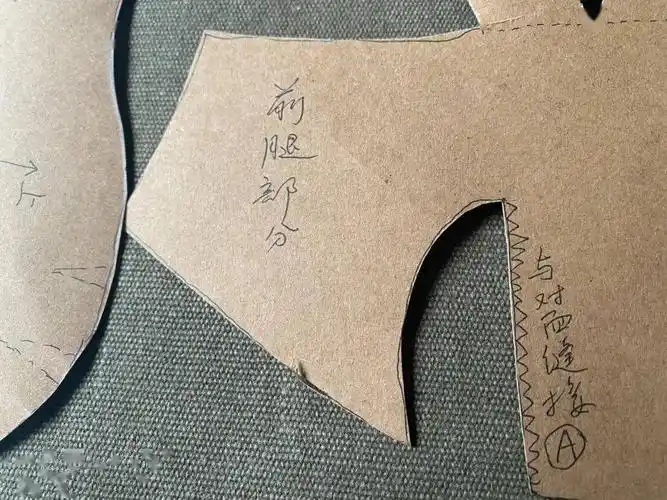 前腿部分
与对面缝接
A
下